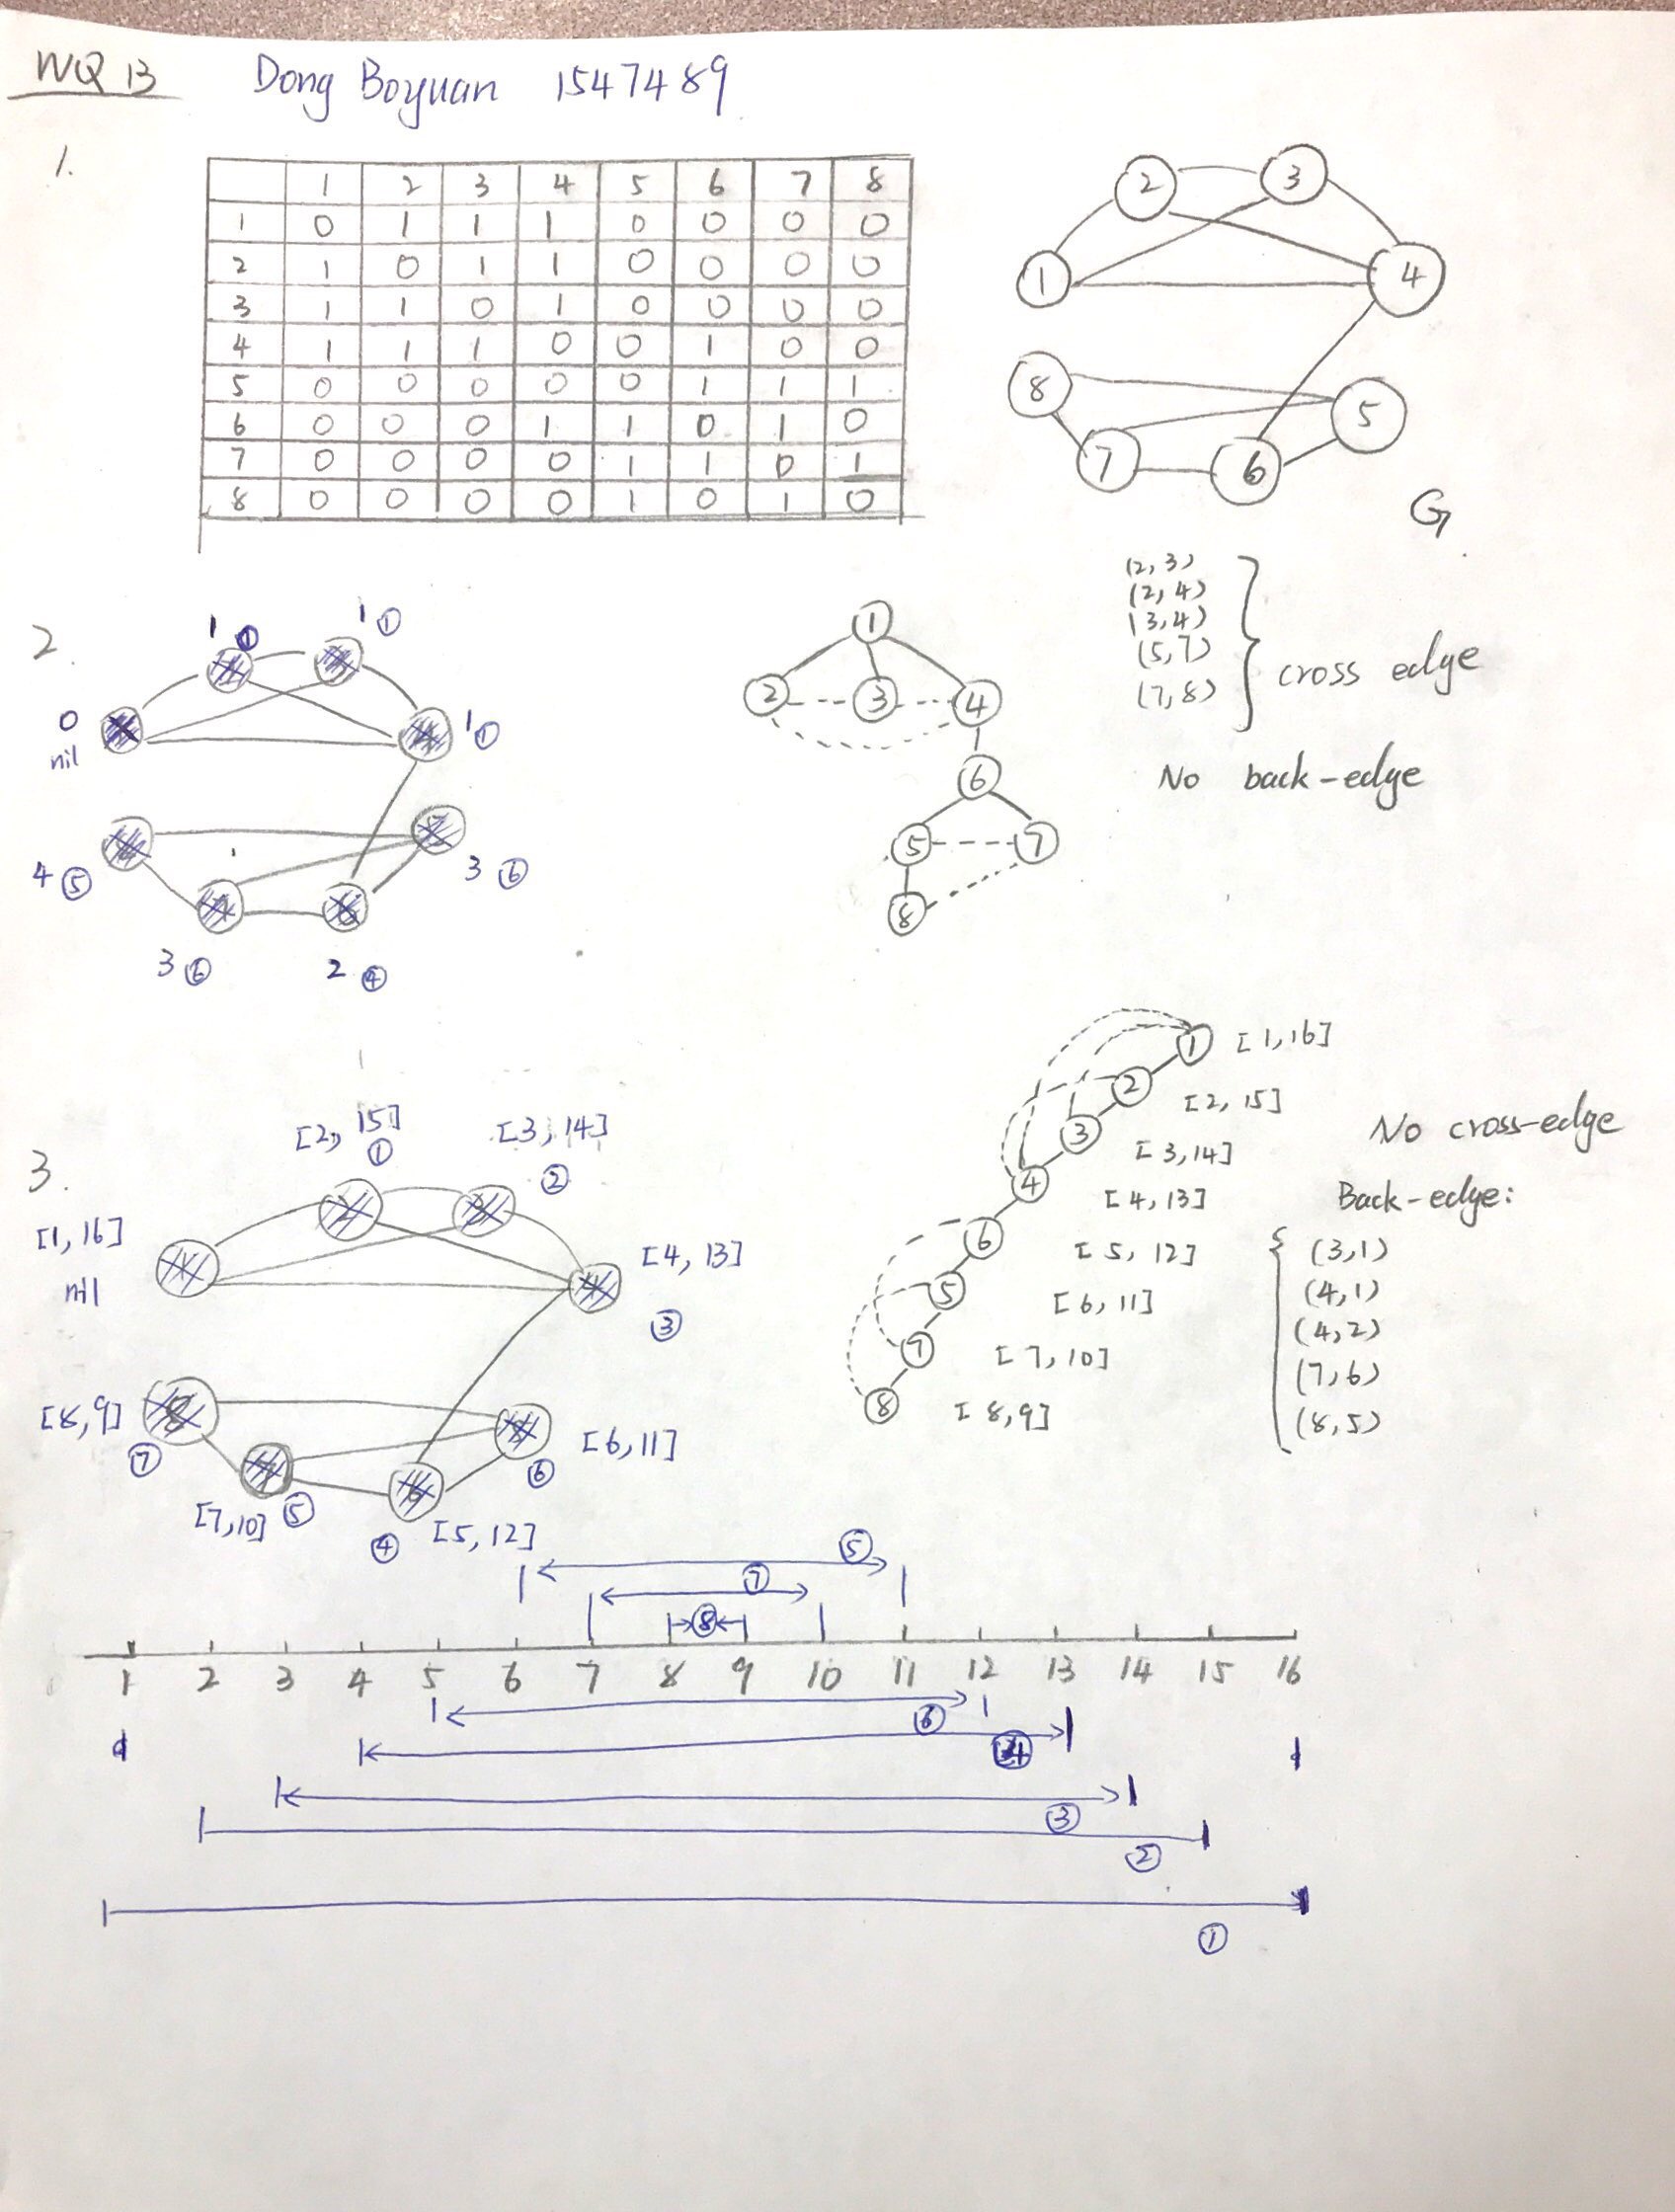 WQ 13 Dong Boyuan 1547489
1.
1 2 3 4 5 6 7 8
1 0 1 1 1 0 0 0 0
2 1 0 1 1 0 0 0 0
3 1 1 0 1 0 0 0 0
4 1 1 1 0 0 1 0 0
5 0 0 0 0 0 1 1 1
6 0 0 0 1 1 0 1 0
7 0 0 0 0 1 1 0 1
8 0 0 0 0 1 0 1 0
2 3
1 4
8 5
7 6
G
2.
1 ① 1 ①
0
nil
1 ①
4 ⑤
3 ⑥
3 ⑥ 2 ④
1
2 3 4
6
5 7
8
(2, 3)
(2, 4)
(3, 4)
(5, 7)
(7, 8)
cross edge
No back-edge
3.
[2, 15] ①
[3, 14] ②
[1, 16]
nil
[4, 13]
③
[8, 9]
⑦
[6, 11]
⑥
[7, 10] ⑤
④ [5, 12]
1 [1, 16]
2 [2, 15]
3 [3, 14]
4 [4, 13]
6 [5, 12]
5 [6, 11]
7 [7, 10]
8 [8, 9]
No cross-edge
Back-edge:
(3, 1)
(4, 1)
(4, 2)
(7, 6)
(8, 5)
⑤
⑦
⑧
1 2 3 4 5 6 7 8 9 10 11 12 13 14 15 16
⑥
④
③
②
①